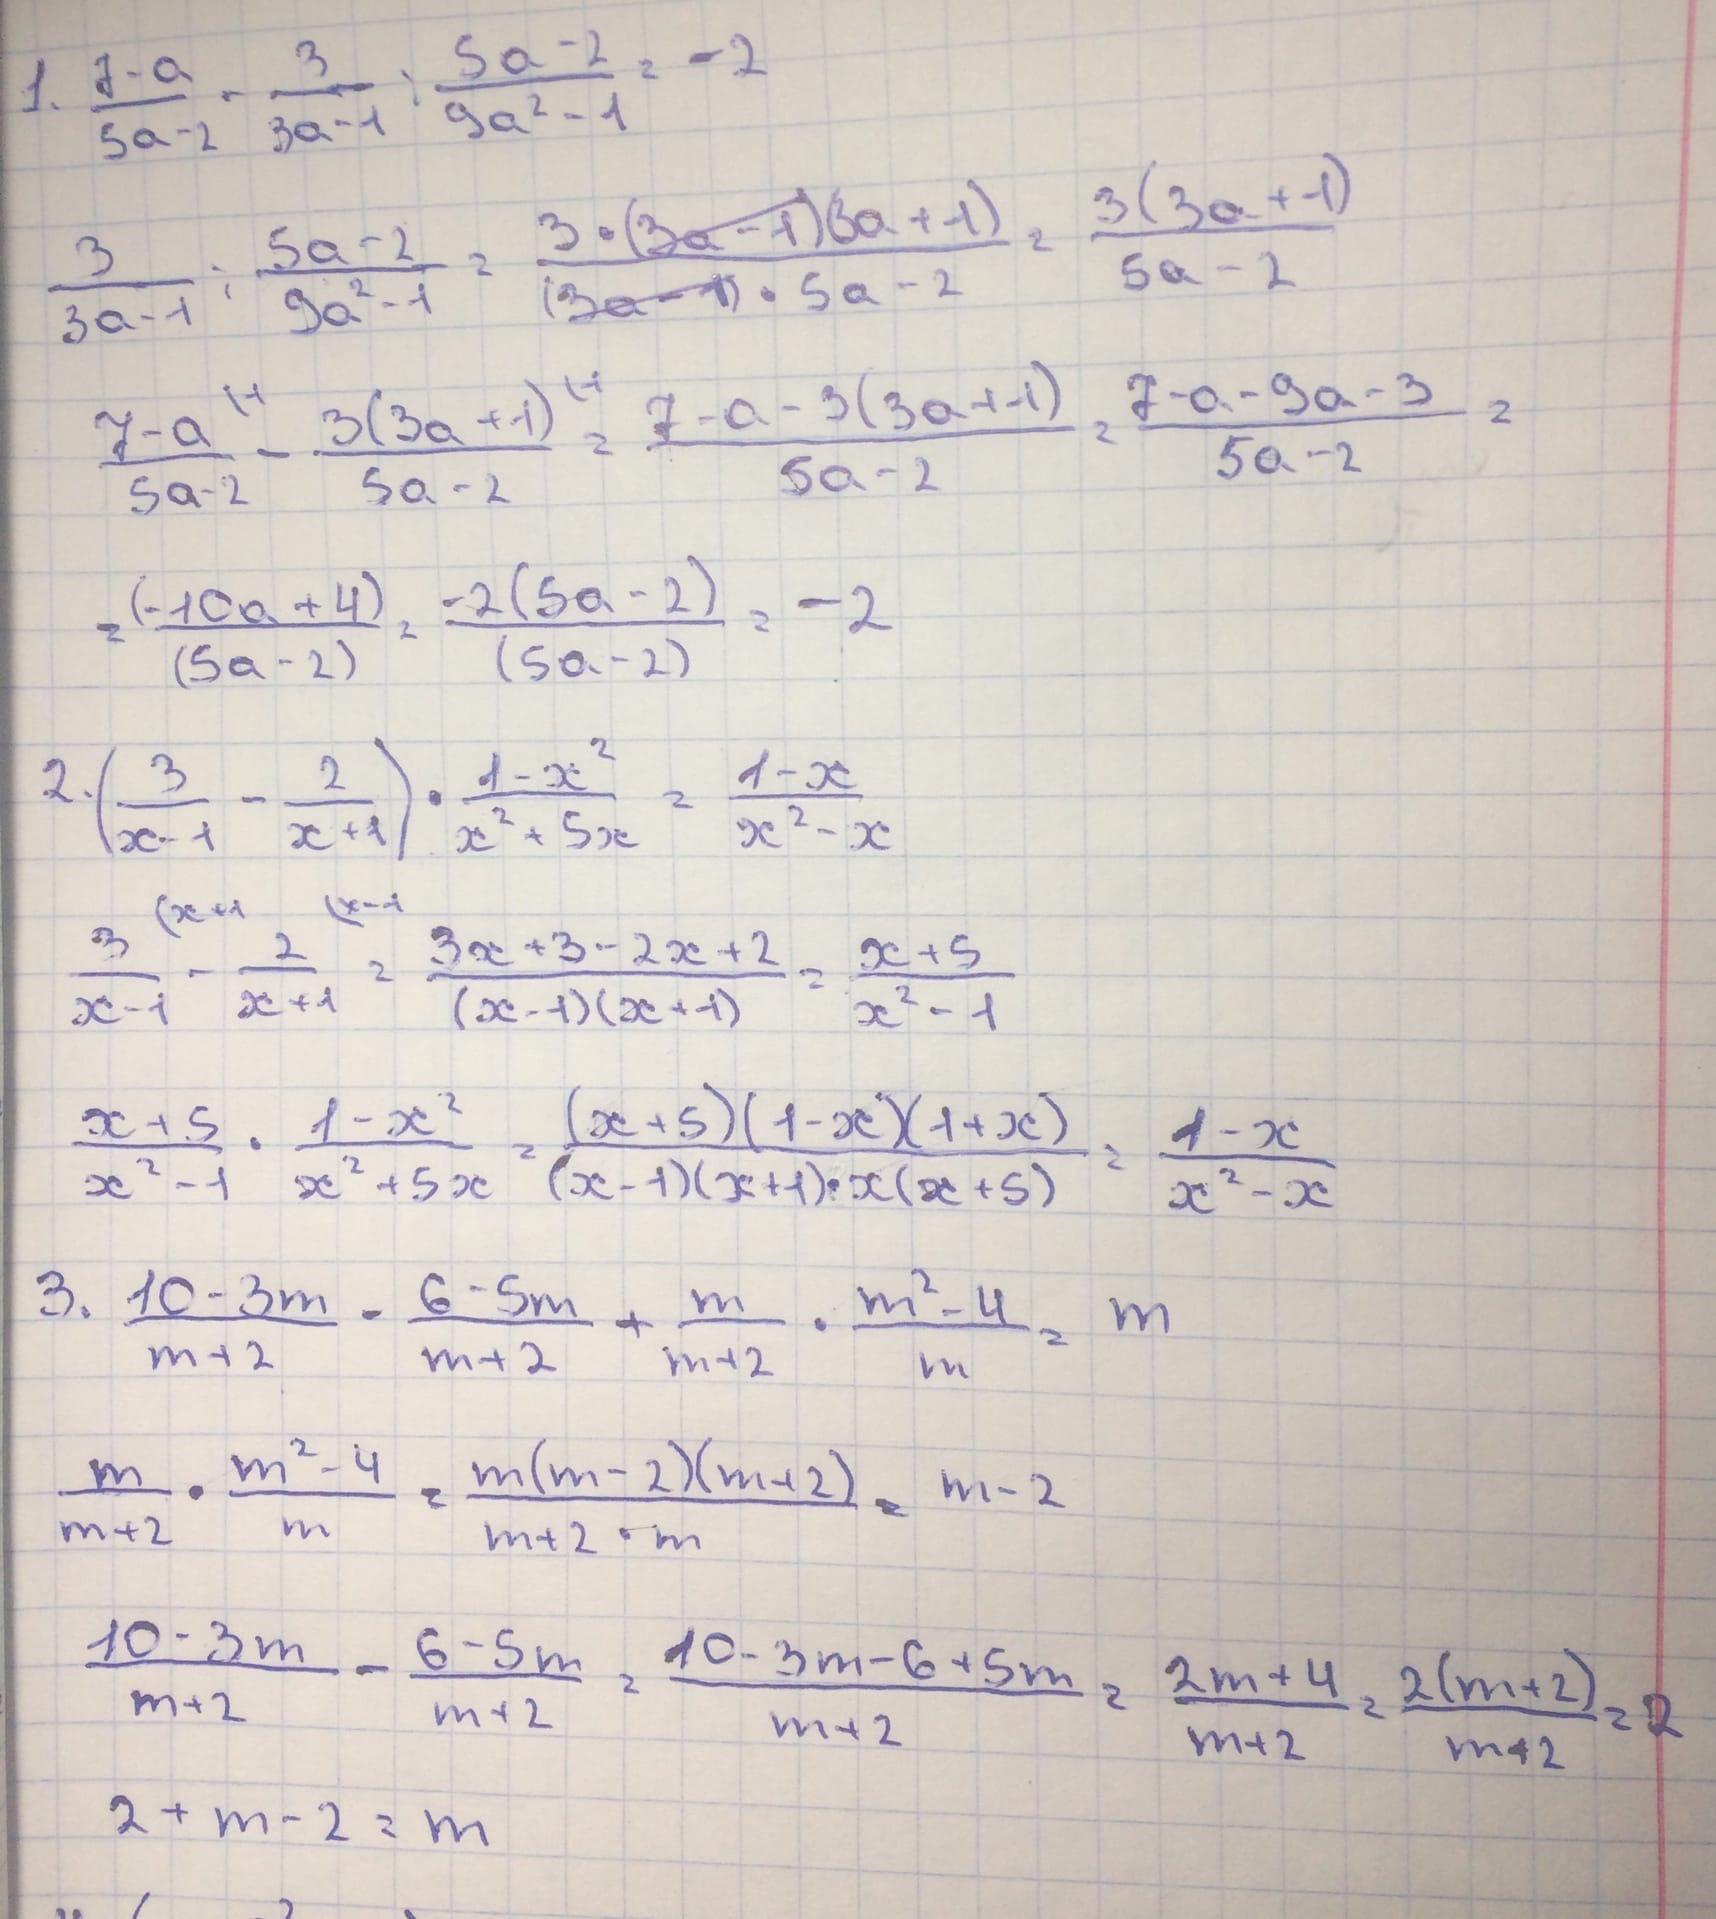 1. (7-a)/(5a-2) - 3/(3a-1) : (5a-2)/(9a²-1) = -2
3/(3a-1) : (5a-2)/(9a²-1) = (3·(3a-1)(3a+1))/((3a-1)·5a-2) = (3(3a+1))/(5a-2)
(7-a)/(5a-2) (1 - (3(3a+1))/(5a-2) (1 = (7-a-3(3a+1))/(5a-2) = (7-a-9a-3)/(5a-2) =
= (-10a+4)/(5a-2) = (-2(5a-2))/(5a-2) = -2
2. (3/(x-1) - 2/(x+1)) · (1-x²)/(x²+5x) = (1-x)/(x²-x)
3/(x-1) (x+1 - 2/(x+1) (x-1 = (3x+3-2x+2)/((x-1)(x+1)) = (x+5)/(x²-1)
(x+5)/(x²-1) · (1-x²)/(x²+5x) = ((x+5)(1-x)(1+x))/((x-1)(x+1)·x(x+5)) = (1-x)/(x²-x)
3. (10-3m)/(m+2) - (6-5m)/(m+2) + m/(m+2) · (m²-4)/m = m
m/(m+2) · (m²-4)/m = (m(m-2)(m+2))/(m+2·m) = m-2
(10-3m)/(m+2) - (6-5m)/(m+2) = (10-3m-6+5m)/(m+2) = (2m+4)/(m+2) = (2(m+2))/(m+2) = 2
2+m-2=m